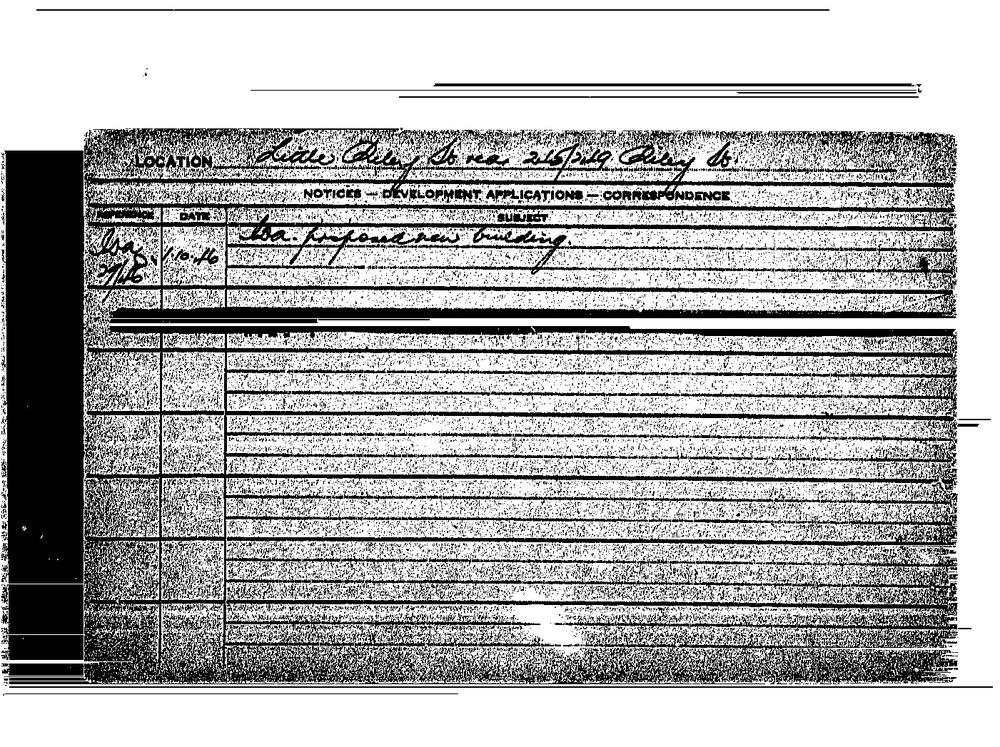 LOCATION Little Riley St. rear 245/249 Riley St.
NOTICES — DEVELOPMENT APPLICATIONS — CORRESPONDENCE
REFERENCE DATE SUBJECT
1.10.46 proposed new building.